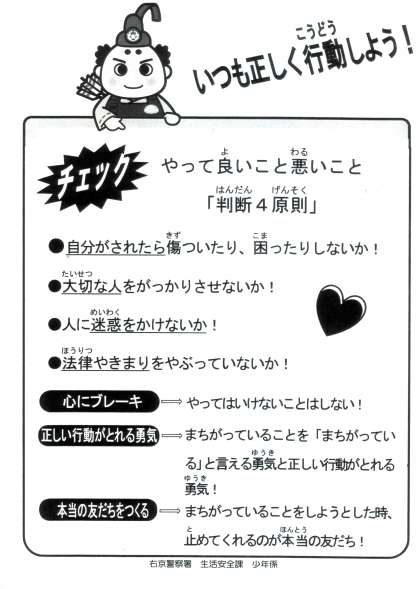 いつも正しく行動しよう！
チェック
やって良いこと悪いこと
「判断４原則」
●自分がされたら傷ついたり、困ったりしないか！
●大切な人をがっかりさせないか！
●人に迷惑をかけないか！
●法律やきまりをやぶっていないか！
心にブレーキ ⇒ やってはいけないことはしない！
正しい行動がとれる勇気 ⇒ まちがっていることを「まちがってい
る」と言える勇気と正しい行動がとれる
勇気！
本当の友だちをつくる ⇒ まちがっていることをしようとした時、
止めてくれるのが本当の友だち！
右京警察署　生活安全課　少年係